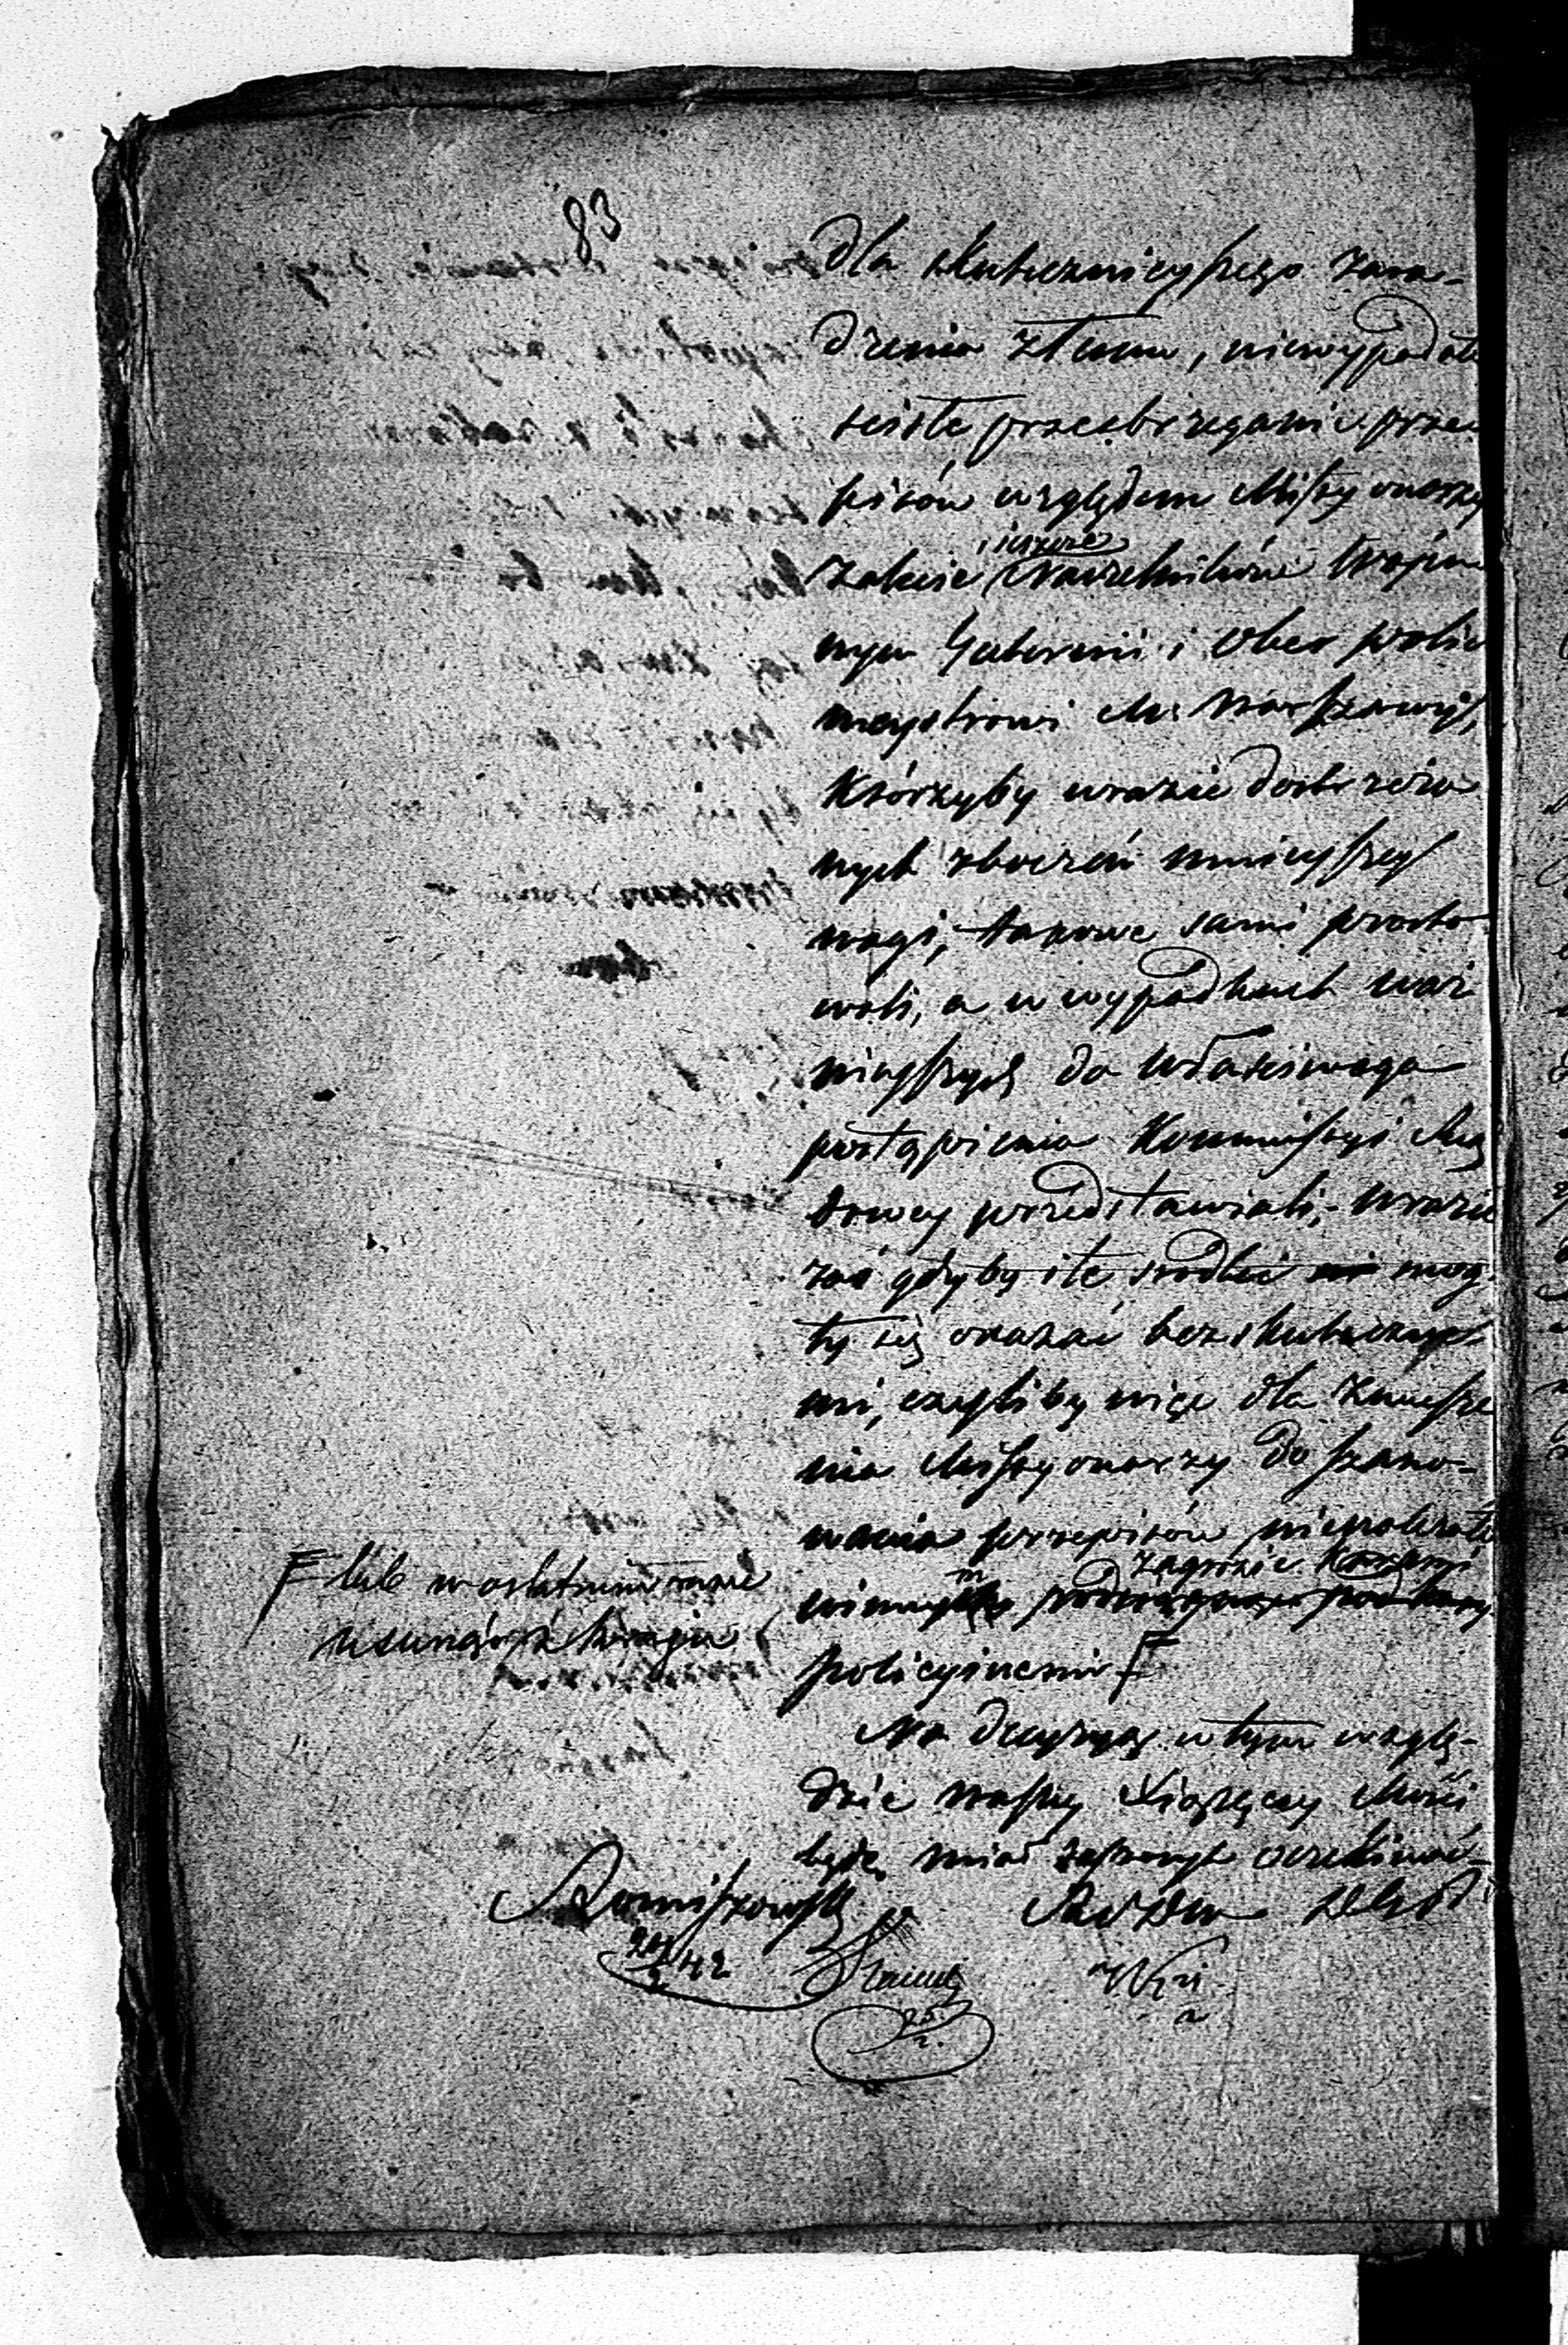 83
dla skutecznieyszego zara-
dzenia złemu, niewypadało
ściśle przestrzeganie prze-
pisów względem Missyonarzy
jeszcze
zalecić Naczelników Wojen
nym Gubernii i Ober polic
meystrowi M. Warszawy,
którzyby wrazie dostrzeżo
nych zboczeń mnieyszey
wagi, takowe sami prosto-
wali, a w wypadkach waż
nieyszych do właściwego
postąpienia Kommissyi Rzą
dowey przedstawiali; wrazie
zaś gdyby i te środki mog-
ły się okazać bezskuteczne
mi, czyliby nie dla zmusze
nia Missyonarzy do szano-
wania przepisów nienależało
zagrozić karami
winnym
policyinemi F
F lub w ostatnim razie
usunąć z kraju
Na decyzyą w tym wzglę-
dzie Waszey Xiążęcey Mości
będę miał zaszczyt oczekiwać
Romiszowski
20/2 42
25/2